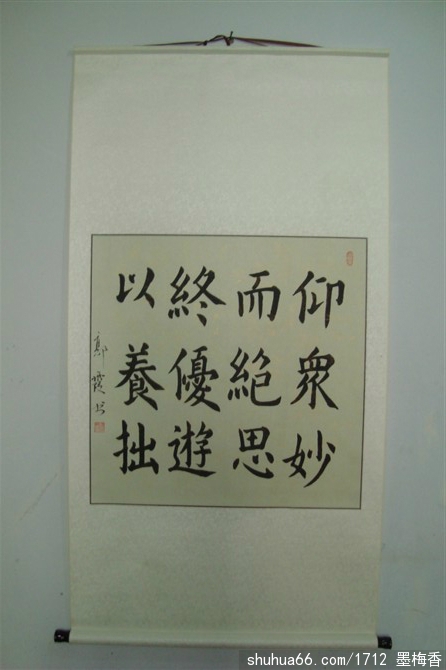 仰眾妙
而絕思
終優遊
以養拙
鄭霞书
shuhua66.com/1712 墨梅香